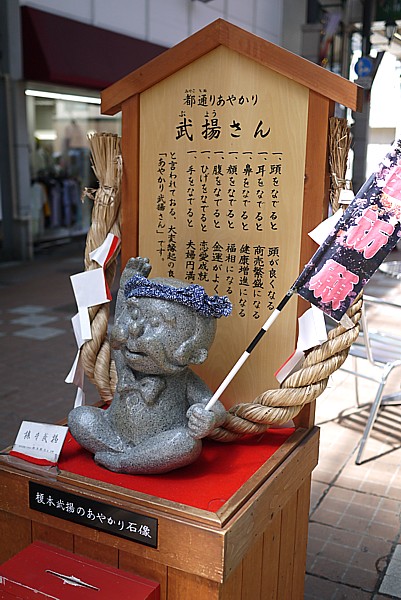 都通りあやかり
ぶ よう
武揚さん
一、頭をなでると 頭が良くなる
一、耳をなでると 商売繁盛になる
一、鼻をなでると 健康増進になる
一、顔をなでると 福相になる
一、腹をなでると 金運がよくなる
一、ひげをなでると 恋愛成就
一、手をなでると 夫婦円満
と言われておる、大変縁起の良
「あやかり武揚さん」です。
榎本武揚のあやかり石像